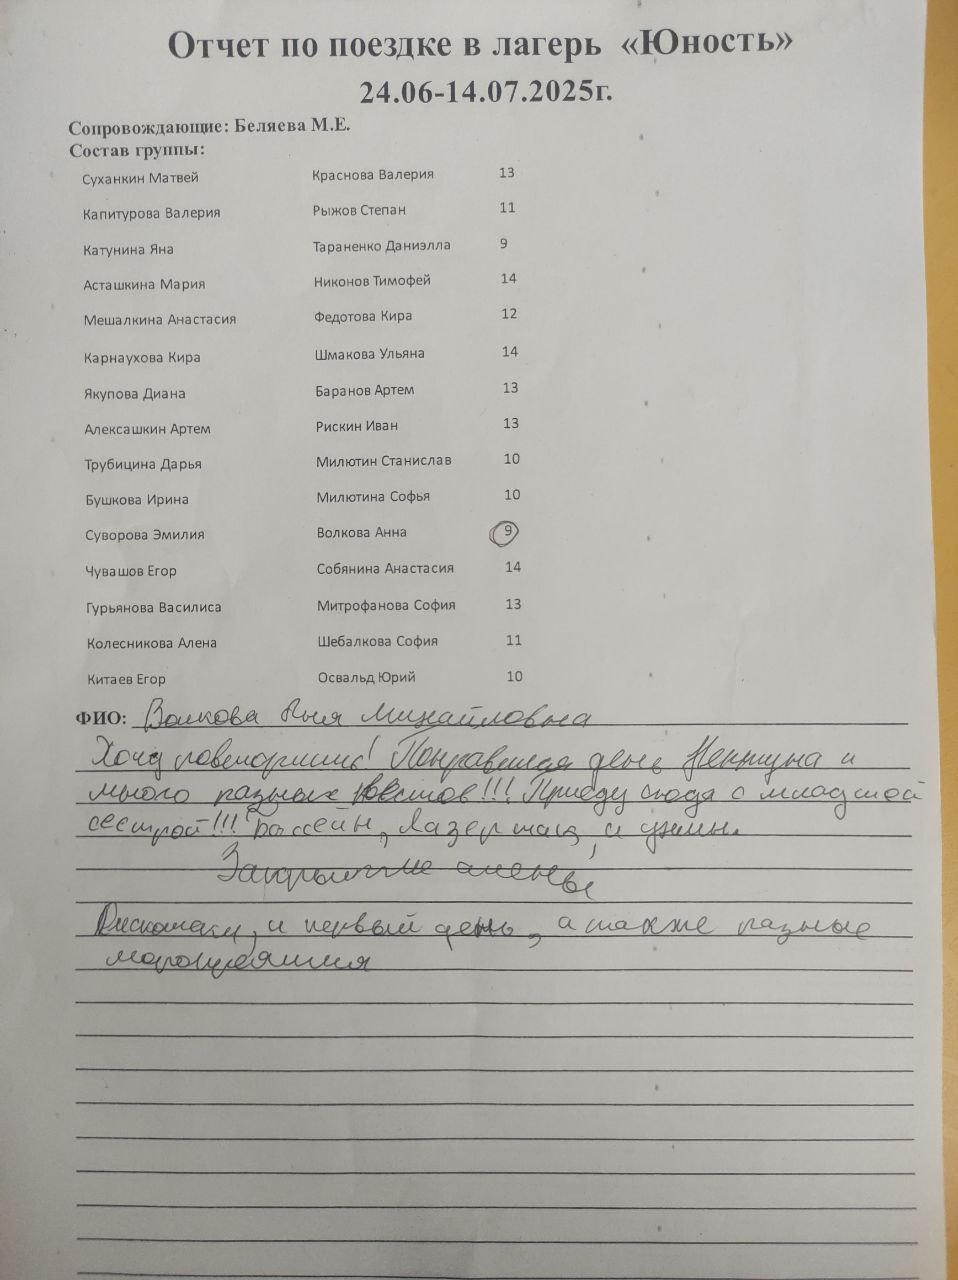 Отчет по поездке в лагерь «Юность»
24.06-14.07.2025г.
Сопровождающие: Беляева М.Е.
Состав группы:
Суханкин Матвей Краснова Валерия 13
Капитурова Валерия Рыжов Степан 11
Катунина Яна Тараненко Даниэлла 9
Асташкина Мария Никонов Тимофей 14
Мешалкина Анастасия Федотова Кира 12
Карнаухова Кира Шмакова Ульяна 14
Якупова Диана Баранов Артем 13
Алексашкин Артем Рискин Иван 13
Трубицина Дарья Милютин Станислав 10
Бушкова Ирина Милютина Софья 10
Суворова Эмилия Волкова Анна 9
Чувашов Егор Собянина Анастасия 14
Гурьянова Василиса Митрофанова София 13
Колесникова Алена Шебалкова София 11
Китаев Егор Освальд Юрий 10
ФИО: Волкова Аня Михайловна
Хочу повторить! Понравился день Нептуна и
много разных квестов!!! Приеду сюда с младшей
сестрой!!! Бассейн, Лазертаг, и ужин.
Закрытие смены,
Дискотеки, и первый день, а также разные